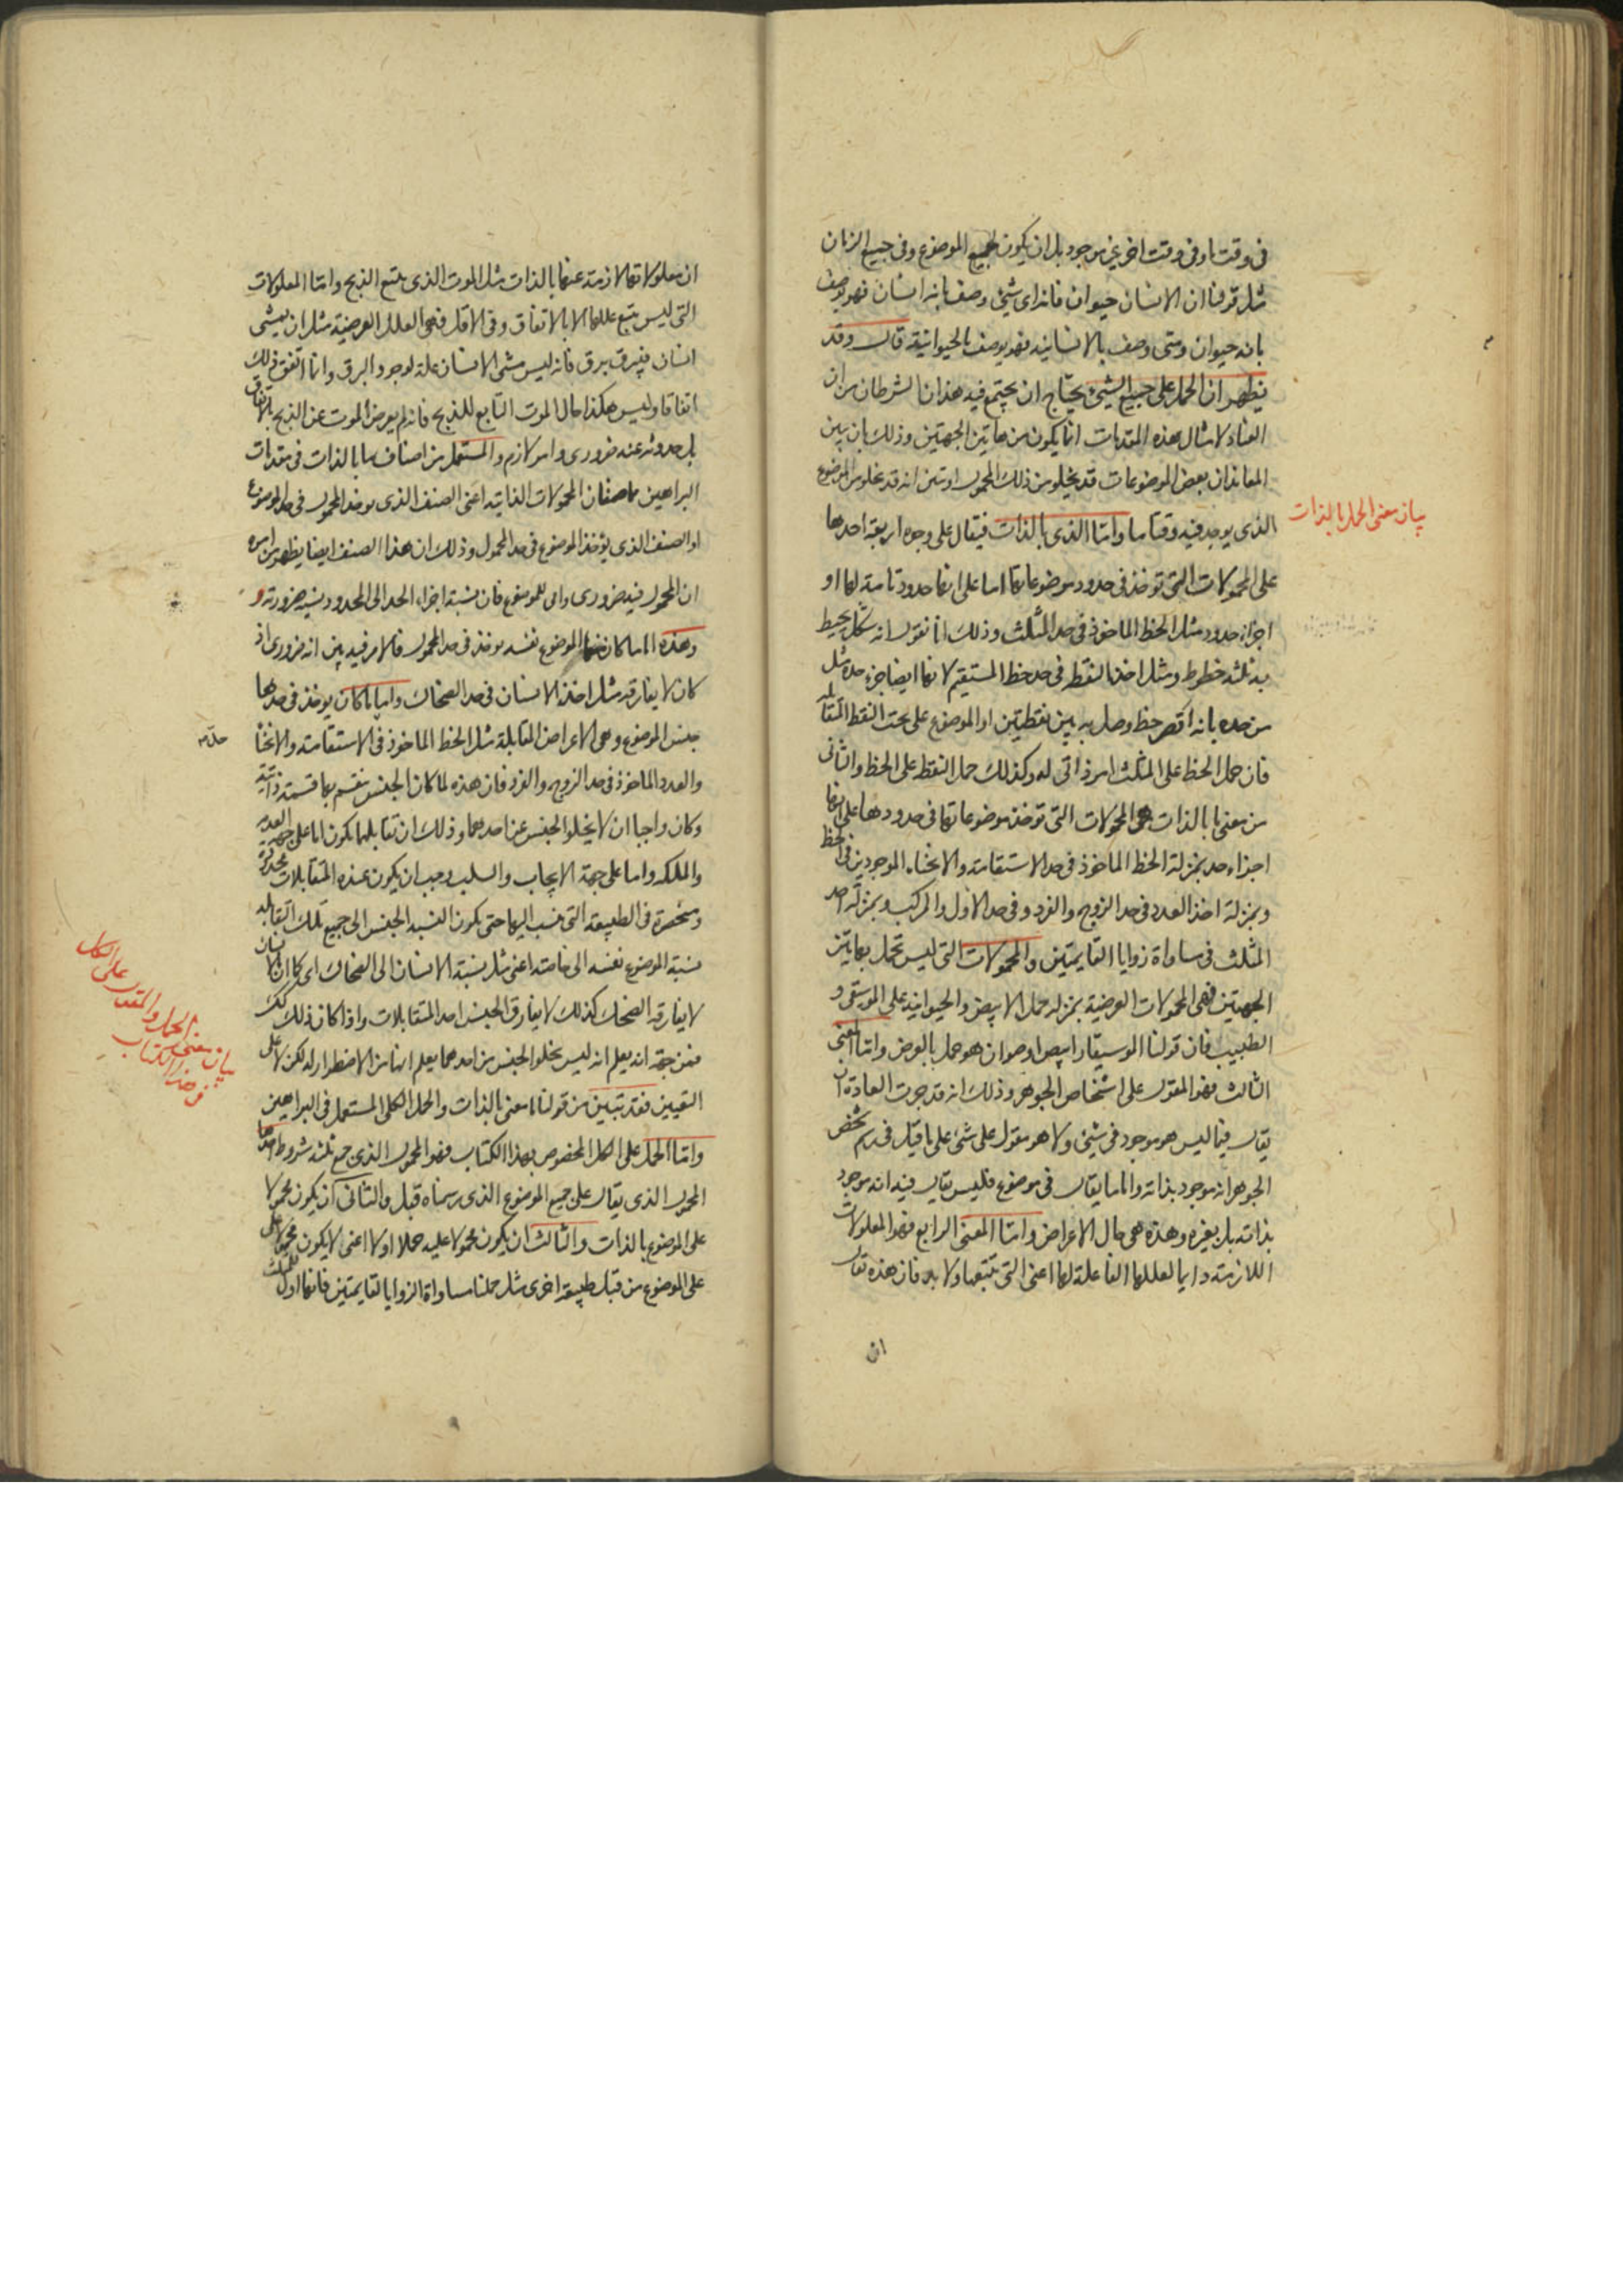 فى وقت ما وفى وقت اخر غير موجود بل ان يكون لجميع الموضوع وفى جميع الزمان
مثل قولنا ان الانسان حيوان فانه اى شئ وصف بانه انسان فهو يوصف
بانه حيوان ومتى وصف بالانسانية فهو يوصف بالحيوانية قال وقد
يظهر ان الحمل على جميع الشئ يحتاج ان يجتمع فيه هذان الشرطان من ان
العناد لامثال هذه المقدمات انما يكون من هاتين الجهتين وذلك بان يبين
المعاند ان بعض الموضوعات قد يخلو من ذلك المحمول او يبين انه قد يخلو من الموضوع
الذى يوجد فيه وقتا ما واما الذى بالذات فيقال على وجوه اربعة احدها
بيان معنى الحمل بالذات
على المحمولات التى توخذ فى حدود موضوعاتها اما على انها حدود تامة لها او
اجزاء حدود مثل الخط الماخوذ فى حد المثلث وذلك انا نقول انه شكل يحيط
به ثلثة خطوط ومثل اخذ النقط فى حد خط المستقيم لانها ايضا جزء حده مثل
من حده بانه اقصر خط وصل به بين نقطتين او الموضوع على سمت النقط المتقابلة
فان حمل الخط على المثلث امر ذاتى له وكذلك حمل النقط على الخط والثانى
من معنى ما بالذات هى المحمولات التى توخذ موضوعاتها فى حدودها على انها
اجزاء حد بمنزلة الخط الماخوذ فى حد الاستقامة والانحناء الموجودين فى الخط
وبمنزلة اخذ العدد فى حد الزوج والفرد وفى حد الاول والمركب وبمنزلة اخذ
المثلث فى مساواة زوايا القايمتين والمحمولات التى ليس تحمل بهاتين
الجهتين فهى المحمولات العرضية بمنزله حمل الابيض والحيوانية على الموسيقى و
الطبيب فان قولنا الموسيقار ابيض او حيوان هو حمل بالعرض واما المعنى
الثالث فهو المقول على اشخاص الجوهر وذلك انه قد جرت العادة ان
يقال فيما ليس هو موجود فى شئ ولا هو مقول على شئ على ما قيل فى رسم شخص
الجوهر انه موجود بذاته واما ما يقال فى موضوع فليس يقال فيه انه موجود
بذاته بل بغيره وهذه هى حال الاعراض واما المعنى الرابع فهو المعلولات
اللازمة دايما لعللها الفاعلة لها اعنى التى تتبعها ولا بد فان هذه يقال
ان
ان معلولاتها لازمة عنها بالذات مثل الموت الذى يتبع الذبح واما المعلولات
التى ليس يتبع عللها الا بالاتفاق وفى الاقل فهى العلل العرضية مثل ان يمشى
انسان فيبرق برق فانه ليس مشى الانسان علة لوجود البرق وانما اتفق ذلك
اتفاقا وليس هكذا حال الموت التابع للذبح فانه لم يعرض الموت عن الذبح بالاتفاق
بل حدوثه عنه ضرورى وامر لازم والمستعمل من اصناف ما بالذات فى مقدمات
البراهين هما صنفان المحمولات الذاتية اعنى الصنف الذى يوخذ المحمول فى حد الموضوع
او الصنف الذى يؤخذ الموضوع فى حد المحمول وذلك ان هذا الصنف ايضا يظهر من امره
ان المحمول فيه ضرورى دايم للموضوع فان نسبة اجزاء الحد الى المحدود نسبة ضرورية و
وهذه اما ما كان منها الموضوع نفسه يوخذ فى حد المحمول فالامر فيه بين انه ضرورى اذ
كان لا يفارقه مثل اخذ الانسان فى حد الضحاك واما ما كان يوخذ فى حدها
جنس الموضوع وهى الاعراض المتقابلة مثل الخط الماخوذ فى الاستقامة والانحنا
والعدد الماخوذ فى حد الزوج والفرد فان هذه لما كان الجنس ينقسم بها قسمة ذاتية
وكان واجبا ان لا يخلو الجنس عن احدهما وذلك ان تقابلهما يكون اما على جهة العدم
والملكه واما على جهة الايجاب والسلب وجب ان يكون عنده المتقابلات محدودة
ومنحصرة فى الطبيعة التى ينسب اليها حتى يكون النسبة الجنس الى جميع تلك المتقابله
نسبة الموضوع نفسه الى خاصته اعنى مثل نسبة الانسان الى الضحاك اى كما ان الانسان
لا يفارقه الضحك كذلك لا يفارق الجنس احد المتقابلات واذا كان ذلك كذلك
فمن جهة انه يعلم انه ليس يخلو الجنس من احدهما يعلم انها من الاضطرار له لكن لا على
التعيين فقد تبين من قولنا معنى بالذات والحمل الكلى المستعمل فى البراهين
بيان معنى الحمل والمقول على الكل
فى هذا الكتاب
واما الحمل على الكل المخصوص بهذا الكتاب فهو المحمول الذى جمع ثلثة شروط احدها
المحمول الذى يقال على جميع الموضوع الذى رسمناه قبل والثانى ان يكون محمولا
على الموضوع بالذات والثالث ان يكون محمولا عليه حملا اولا اعنى لا يكون محمولا على
على الموضوع من قبل طبيعة اخرى مثل حملنا مساواة الزوايا لقايمتين فانها اولا للمثلث